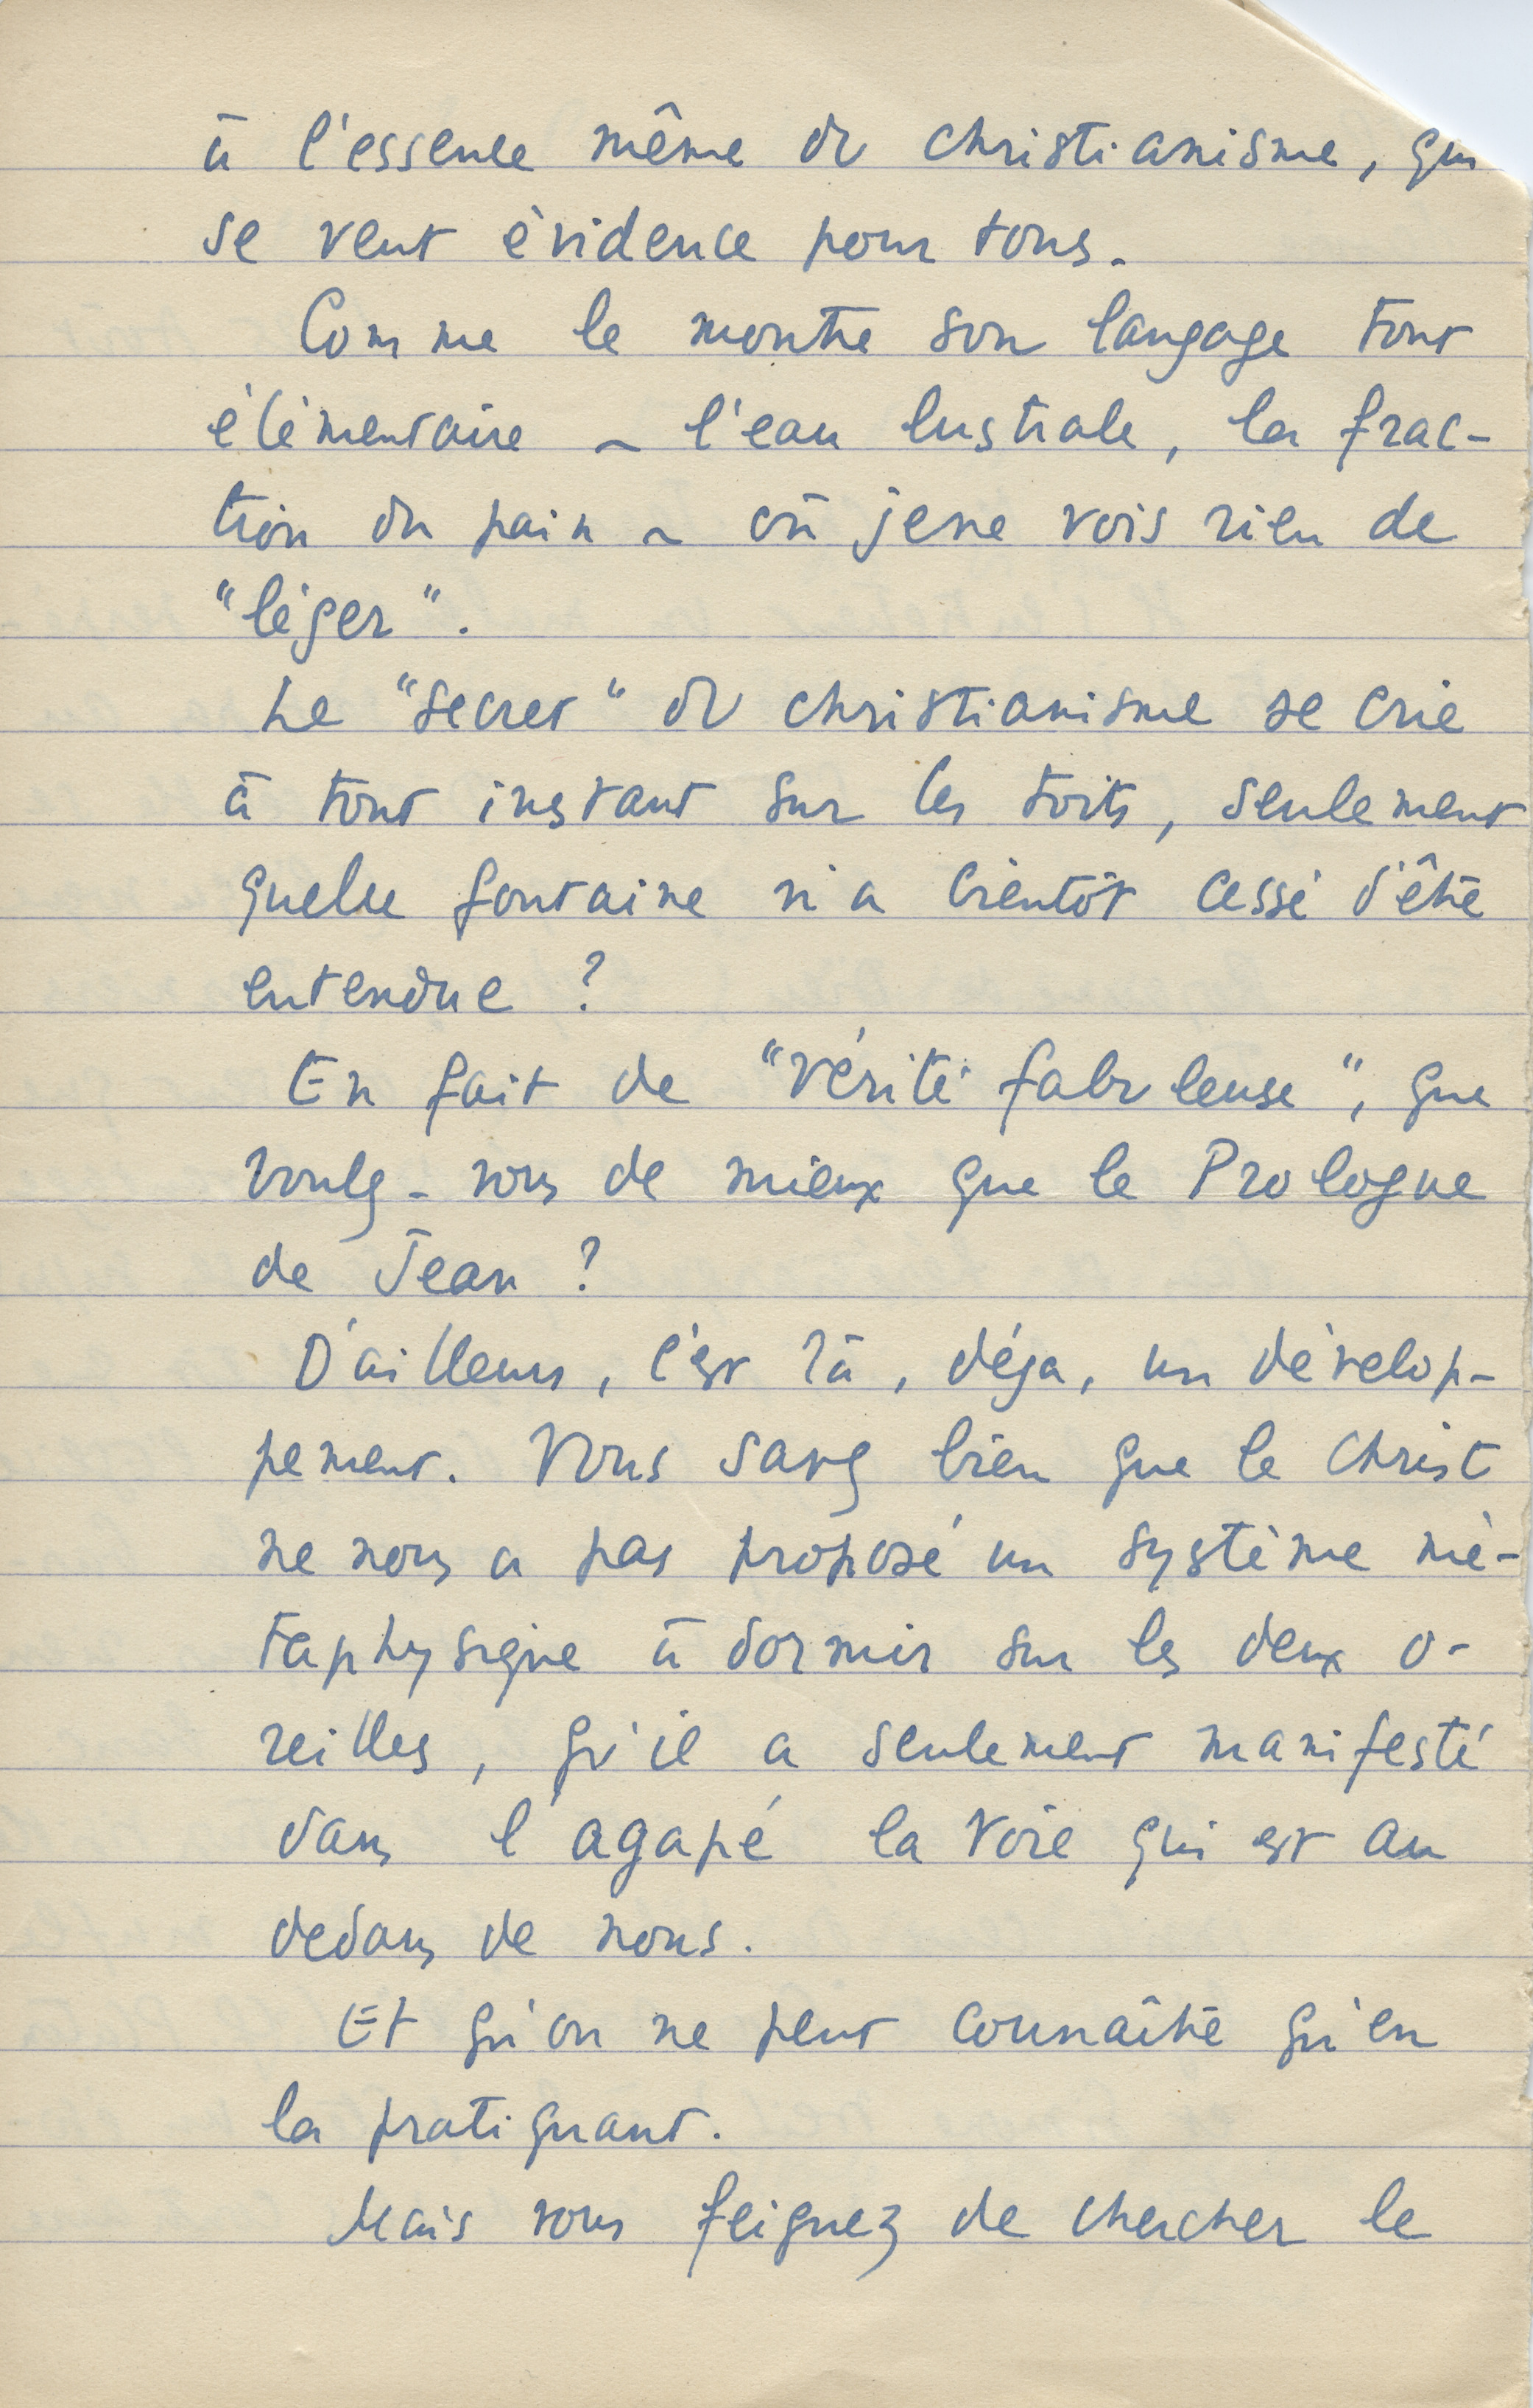 à l'essence même du christianisme, qui
se veut évidence pour tous.
Comme le montre son langage tout
élémentaire - l'eau lustrale, la frac-
tion du pain - où je ne vois rien de
"léger".
Le "secret" du christianisme se crie
à tout instant sur les toits, seulement
quelle fontaine n'a bientôt cessé d'être
entendue ?
En fait de "vérité fabuleuse", que
voulez-vous de mieux que le Prologue
de Jean ?
D'ailleurs, c'est là, déja, un dévelop-
pement. Vous savez bien que le Christ
ne nous a pas proposé un système mé-
taphysique à dormir sur les deux o-
reilles, qu'il a seulement manifesté
dans l'agapé la voie qui est au
dedans de nous.
Et qu'on ne peut connaître qu'en
la pratiquant.
Mais vous feignez de chercher le